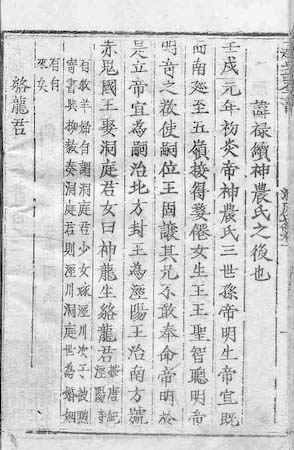 諱祿續神農氏之後也
壬戌元年初炎帝神農氏三世孫帝明生帝宜既
而南廵至五嶺接得婺僊女生王王聖智聰明帝
明奇之欲使嗣位王固讓其兄不敢奉命帝明於
是立帝宜爲嗣治北方封王爲涇陽王治南方號
赤鬼國王娶洞庭君女曰神龍生貉龍君
按唐紀
涇陽時
有牧羊婦自謂洞庭君少女嫁涇川次子被黜
寄書與柳毅奏洞庭君則涇川洞庭世爲婚姻
有自
來矣
貉龍君